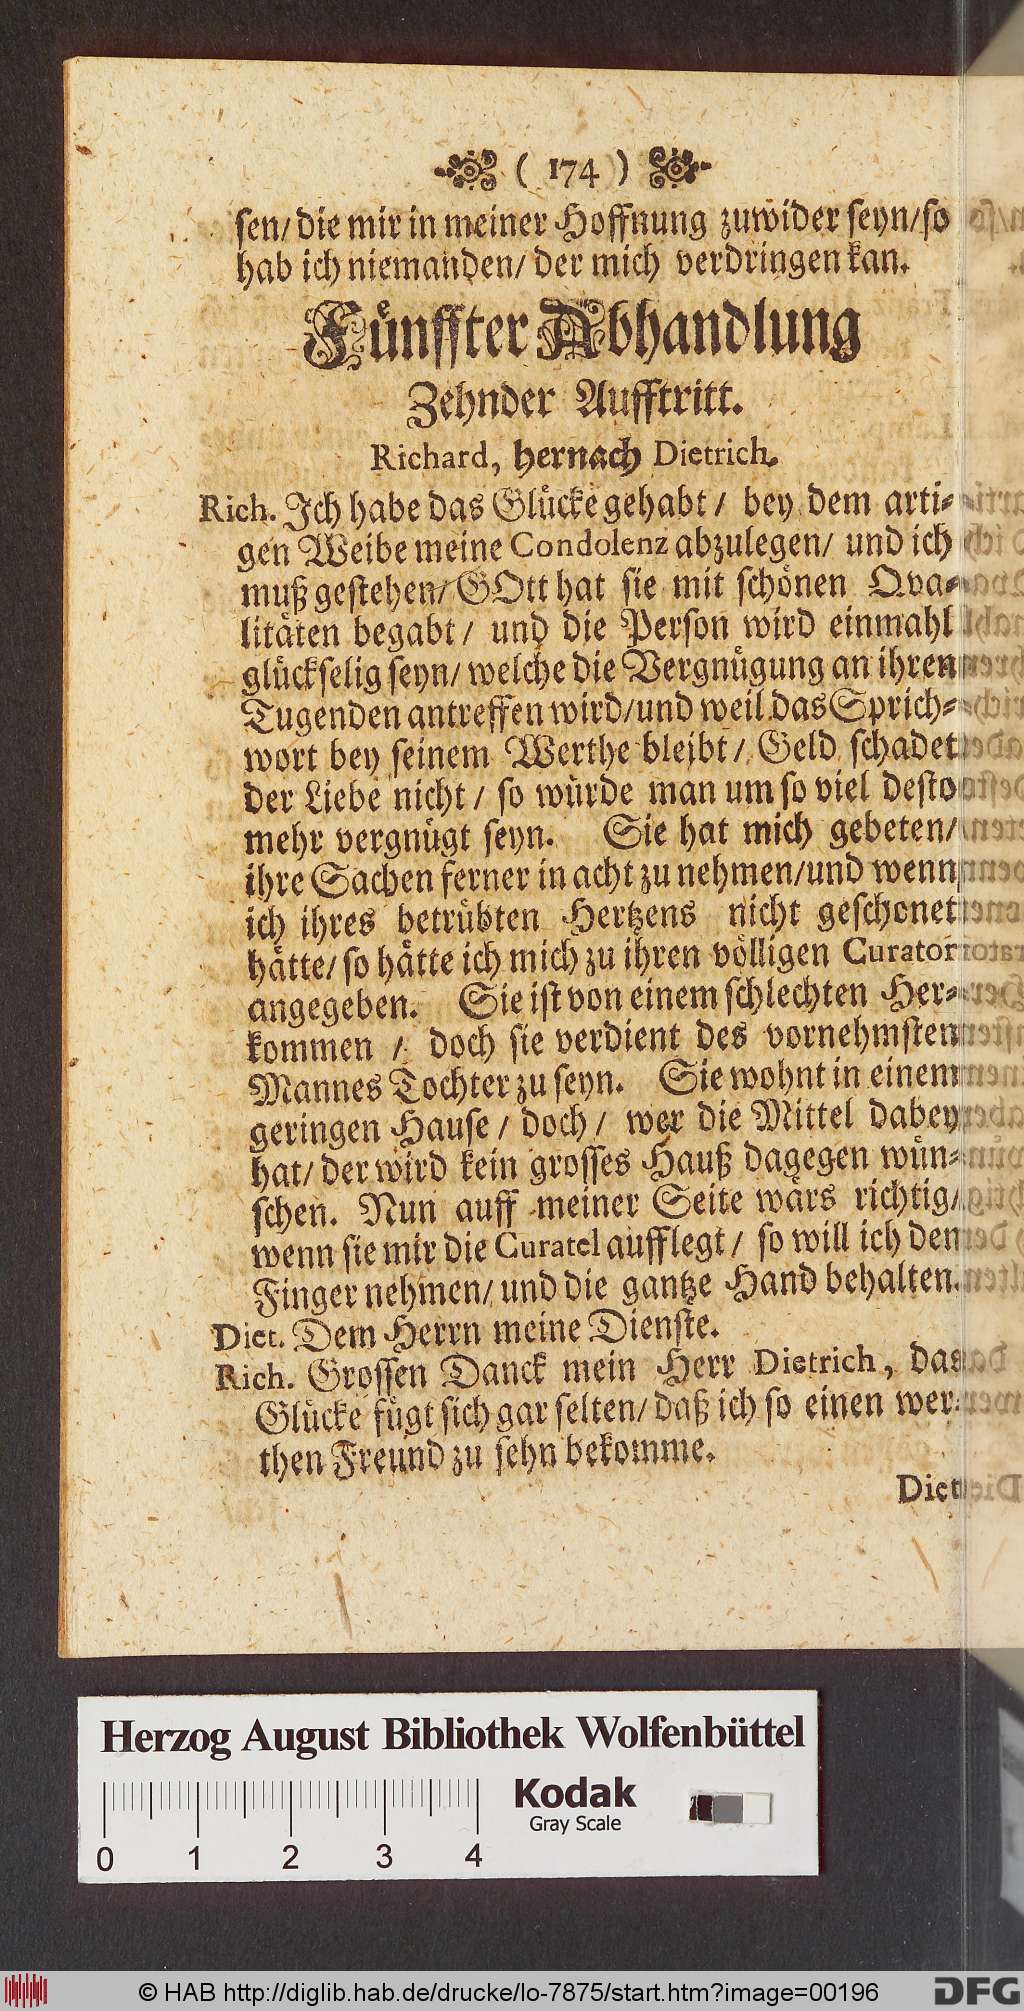 ( 174 )
sen/ die mir in meiner Hoffnung zuwider seyn/ so
hab ich niemanden/ der mich verdringen kan.
Fünffter Abhandlung
Zehnder Aufftritt.
Richard, hernach Dietrich.
Rich. Ich habe das Glücke gehabt / bey dem arti-
gen Weibe meine Condolenz abzulegen/ und ich
muß gestehen/ GOtt hat sie mit schönen Qva-
litäten begabt / und die Person wird einmahl
glückselig seyn/ welche die Vergnügung an ihren
Tugenden antreffen wird/ und weil das Sprich-
wort bey seinem Werthe bleibt / Geld schadet
der Liebe nicht / so würde man um so viel desto
mehr vergnügt seyn. Sie hat mich gebeten/
ihre Sachen ferner in acht zu nehmen/ und wenn
ich ihres betrübten Hertzens nicht geschonet
hätte/ so hätte ich mich zu ihren völligen Curator
angegeben. Sie ist von einem schlechten Her-
kommen / doch sie verdient des vornehmsten
Mannes Tochter zu seyn. Sie wohnt in einem
geringen Hause / doch / wer die Mittel dabey
hat/ der wird kein grosses Hauß dagegen wün-
schen. Nun auff meiner Seite wärs richtig/
wenn sie mir die Curatel aufflegt / so will ich den
Finger nehmen/ und die gantze Hand behalten.
Diet. Dem Herrn meine Dienste.
Rich. Grossen Danck mein Herr Dietrich, das
Glücke fügt sich gar selten/ daß ich so einen wer-
then Freund zu sehn bekomme.
Diet
Herzog August Bibliothek Wolfenbüttel
Kodak
Gray Scale
0 1 2 3 4
© HAB http://diglib.hab.de/drucke/lo-7875/start.htm?image=00196
DFG